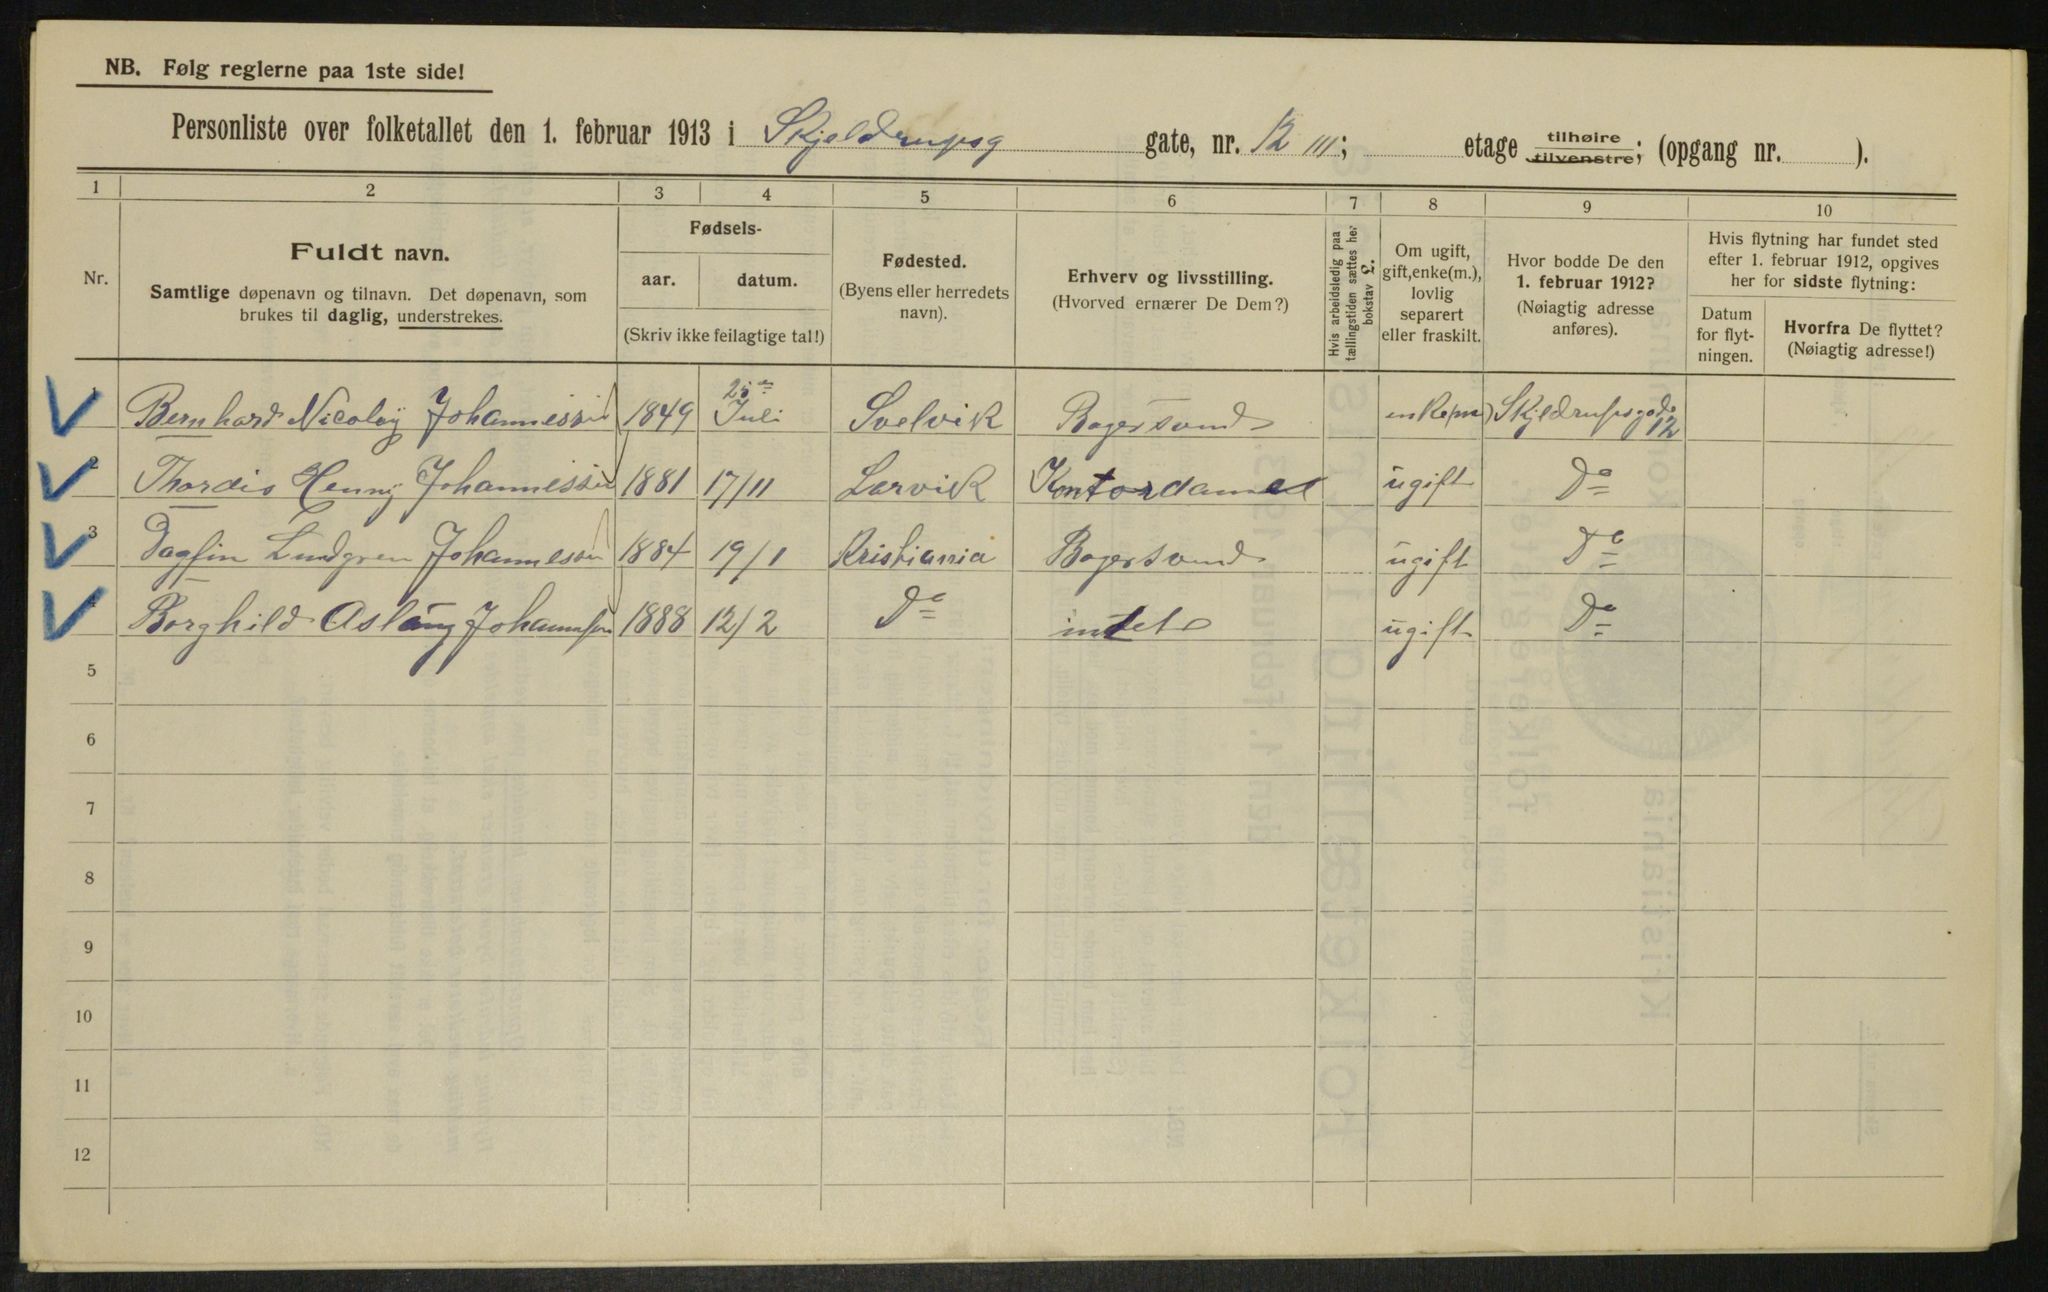 NB. Følg reglerne paa 1ste side!
Personliste over folketallet den 1. februar 1913 i Skjeldrupsg gate, nr. 12 III; etage tilhøire tilvenstre; (opgang nr. ).
1 2 3 4 5 6 7 8 9 10
Nr.
Fuldt navn.
Samtlige døpenavn og tilnavn. Det døpenavn, som
brukes til daglig, understrekes.
Fødsels-
aar. datum.
(Skriv ikke feilagtige tal!)
Fødested.
(Byens eller herredets
navn).
Erhverv og livsstilling.
(Hvorved ernærer De Dem?)
Hvis arbeidsledig paa
tællingstiden sættes her
bokstav L.
Om ugift,
gift, enke(m.),
lovlig
separert
eller fraskilt.
Hvor bodde De den
1. februar 1912?
(Nøiagtig adresse
anføres).
Hvis flytning har fundet sted
efter 1. februar 1912, opgives
her for sidste flytning:
Datum
for flyt-
ningen.
Hvorfra De flyttet?
(Nøiagtig adresse!)
1 Bernhard Nicoloÿ Johannessen 1849 25de Juli Svelvik Bogersvend enke(m) Skjeldrupsgade 12
2 Thordis Hennÿ Johannessen 1881 17/11 Larvik Kontordame ugift Do
3 Dagfin Lundgren Johannessen 1884 19/1 Kristiania Bogersvend ugift Do
4 Borghild Aslaug Johannesen 1888 12/2 Do intet ugift Do
5
6
7
8
9
10
11
12